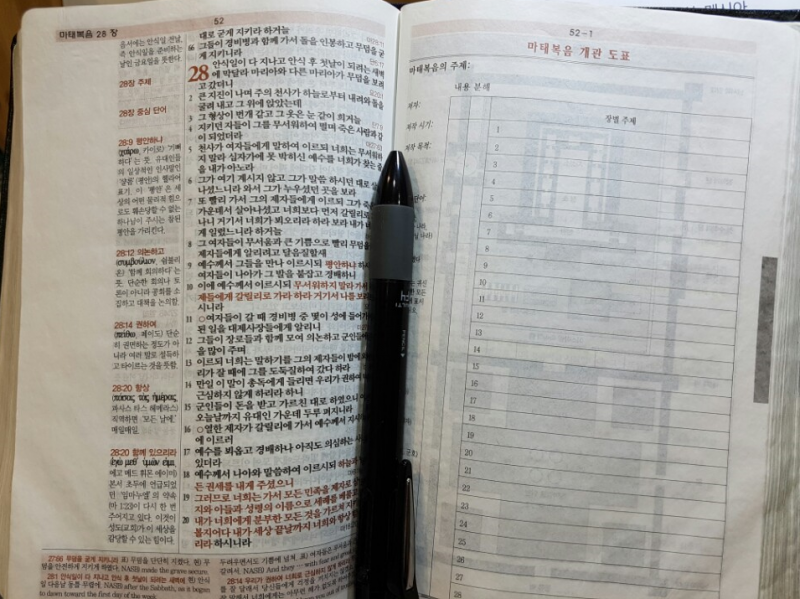 마태복음 28 장
52
음서에는 안식일 전날,
즉 안식일을 준비하는
날인 금요일을 뜻한다.
28장 주제
28장 중심 단어
28:9 평안하나
(χαίρω, 카이로) '기뻐
하다'는 뜻. 유대인들
의 일상적인 인사말인
'샬롬'(평안)의 헬라어
표기. 이 '평안'은 세
상의 어떤 물리적 힘으
로도 훼손당할 수 없는
하나님이 주시는 참된
평안을 가리킨다.
28:12 의논하고
(συμβούλιον, 쉼불리
온) '함께 회의하다'는
뜻. 단순한 회의나 토
론이 아니라 공회를 소
집하고 대책을 논의함.
28:14 권하여
(πείθω, 페이도) 단순
히 권면하는 정도가 아
니라 여러 말로 설득하
고 타이르는 것을 뜻함.
28:20 항상
(πάσας τὰς ἡμέρας,
파사스 타스 헤메라스)
직역하면 '모든 날에',
매일매일.
28:20 함께 있으리라
본서 초두에 언급되었
던 '임마누엘'의 약속
(마 1:23)이 다시 한 번
주어지고 있다. 이것이
성도(교회)가 이 세상을
감당할 수 있는 힘이다.
대로 굳게 지키라 하거늘
66 그들이 경비병과 함께 가서 돌을 인봉하고 무덤을 굳
게 지키니라
28 안식일이 다 지나고 안식 후 첫날이 되려는 새벽
에 막달라 마리아와 다른 마리아가 무덤을 보려
고 갔더니
2 큰 지진이 나며 주의 천사가 하늘로부터 내려와 돌을
굴려 내고 그 위에 앉았는데
3 그 형상이 번개 같고 그 옷은 눈 같이 희거늘
4 지키던 자들이 그를 무서워하여 떨며 죽은 사람과
이 되었더라
5 천사가 여자들에게 말하여 이르되 너희는 무서워하
지 말라 십자가에 못 박히신 예수를 너희가 찾는
을 내가 아노라
6 그가 여기 계시지 않고 그가 말씀 하시던 대로
나셨느니라 와서 그가 누우셨던 곳을 보라
7 또 빨리 가서 그의 제자들에게 이르되 그가
가운데서 살아나셨고 너희보다 먼저 갈릴리로
나니 거기서 너희가 뵈오리라 하라 보라 내가
게 일렀느니라 하거늘
8 그 여자들이 무서움과 큰 기쁨으로 빨리 무덤을
제자들에게 알리려고 달음질할새
9 예수께서 그들을 만나 이르시되 평안하냐 하시
여자들이 나아가 그 발을 붙잡고 경배하니
10 이에 예수께서 이르시되 무서워하지 말라 가서
제들에게 갈릴리로 가라 하라 거기서 나를
시니라
11 ○여자들이 갈 때 경비병 중 몇이 성에 들어가
된 일을 대제사장들에게 알리니
12 그들이 장로들과 함께 모여 의논하고 군인들
을 많이 주며
13 이르되 너희는 말하기를 그의 제자들이 밤에
리가 잘 때에 그를 도둑질하여 갔다 하라
14 만일 이 말이 총독에게 들리면 우리가 권하여
근심하지 않게 하리라 하니
15 군인들이 돈을 받고 가르친 대로 하였으니
오늘날까지 유대인 가운데 두루 퍼지니라
16 ○열한 제자가 갈릴리에 가서 예수께서 지시
에 이르러
17 예수를 뵈옵고 경배하나 아직도 의심하는
있더라
18 예수께서 나아와 말씀하여 이르시되 하늘과
든 권세를 내게 주셨으니
19 그러므로 너희는 가서 모든 민족을 제자로
지와 아들과 성령의 이름으로 세례를 베풀고
20 내가 너희에게 분부한 모든 것을 가르쳐 지키
볼지어다 내가 세상 끝날까지 너희와 항상
리라 하시니라
27:66 무덤을 굳게 지키니라 표) 무덤을 단단히 지켰다. 현) 무
덤을 안전하게 지키게 하였다. NASB) made the grave secure.
28:1 안식일이 다 지나고 안식 후 첫날이 되려는 새벽에 현) 안식
일 다음날 동틀 무렵에. NASB) after the Sabbath, as it began
to dawn toward the first day of the week.
52-1
마태복음 개관 도표
마태복음의 주제:
내용 분해
저자:
저작 시기:
저작 목적:
장별 주제
1
2
3
4
5
6
7
8
9
10
11
12
13
14
15
16
17
18
19
20
21
22
23
24
25
26
27
28